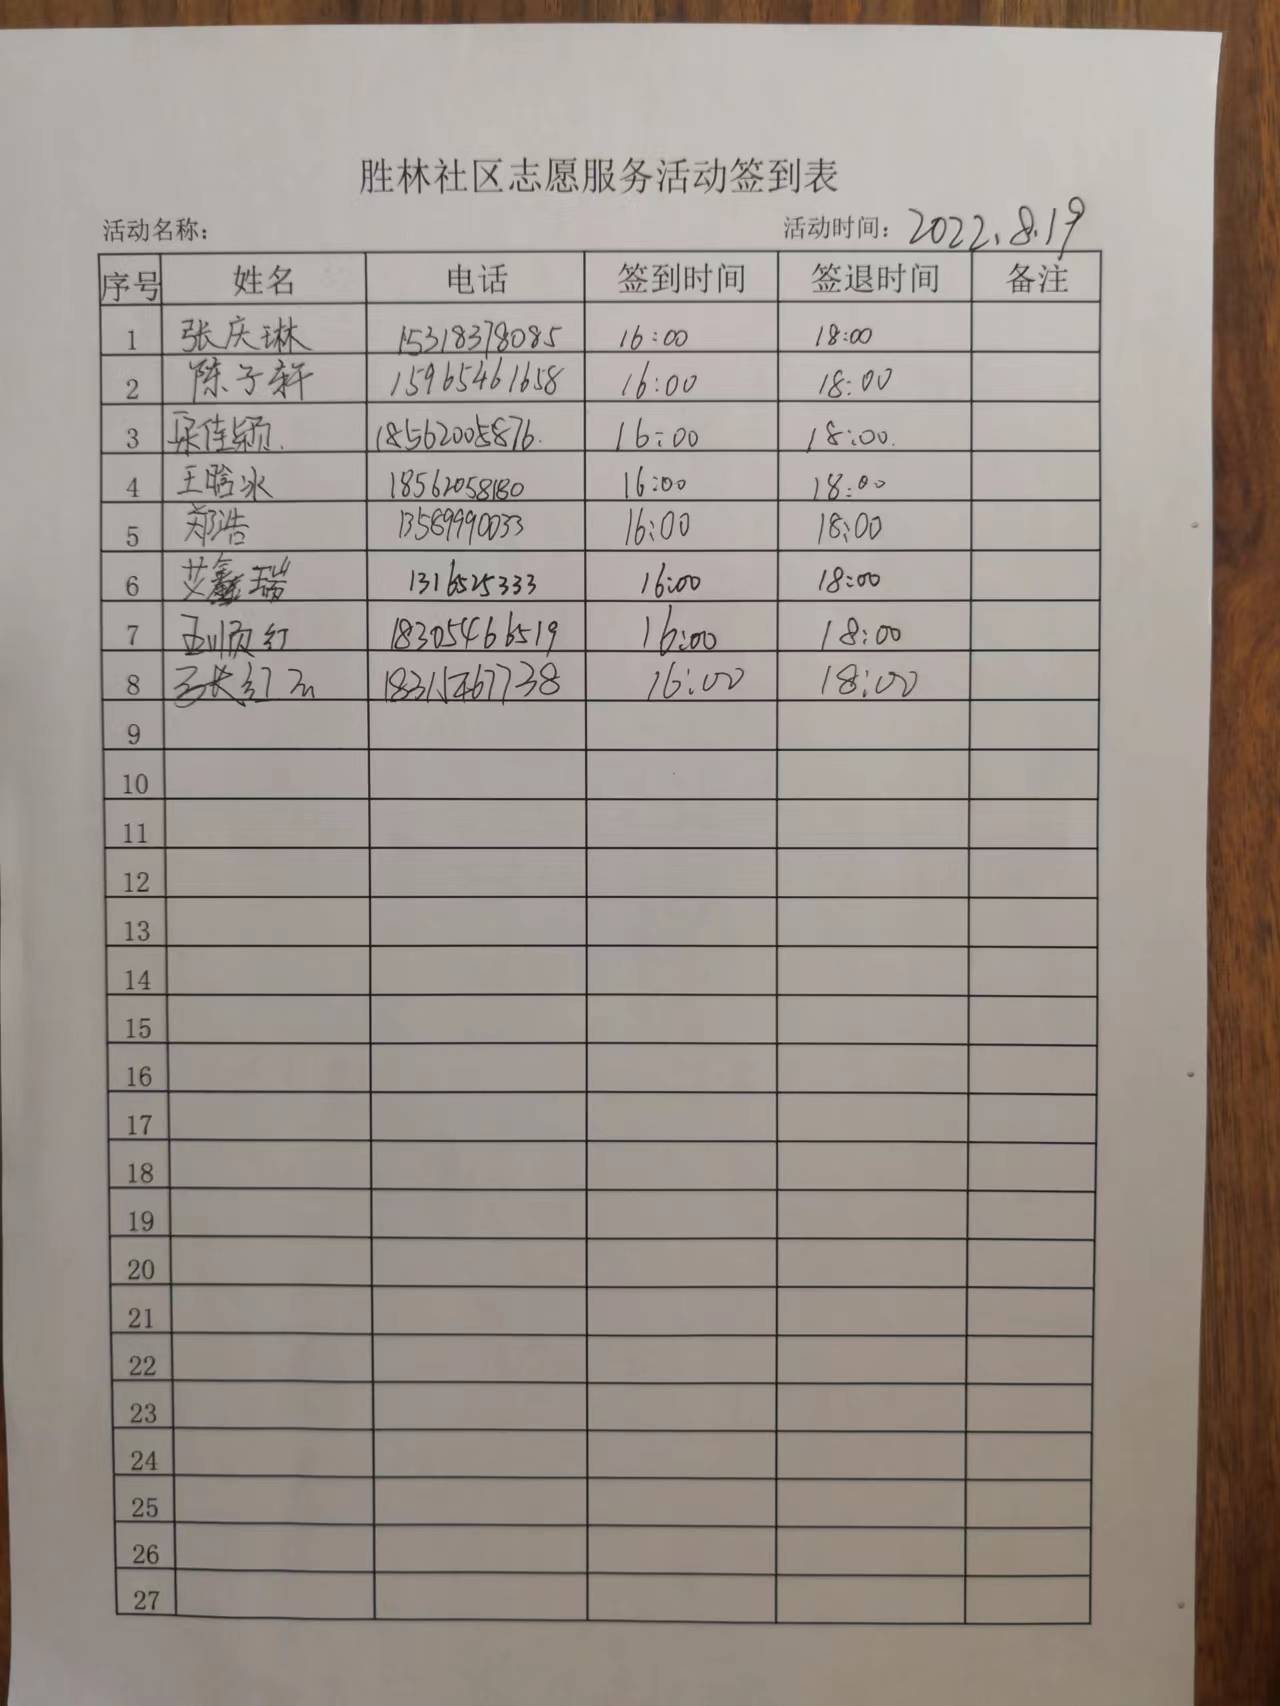 胜林社区志愿服务活动签到表
活动名称： 活动时间：2022.8.19
序号 姓名 电话 签到时间 签退时间 备注
1 张庆琳 15318378085 16:00 18:00
2 陈子轩 15965461658 16:00 18:00
3 梁佳颖. 18562005876. 16:00 18:00.
4 王晗冰 18562058180 16:00 18:00
5 郑浩 13589990033 16:00 18:00
6 艾鑫瑞 1316525333 16:00 18:00
7 王顺红 18305466519 16:00 18:00
8 18315467738 16:00 18:00
9
10
11
12
13
14
15
16
17
18
19
20
21
22
23
24
25
26
27